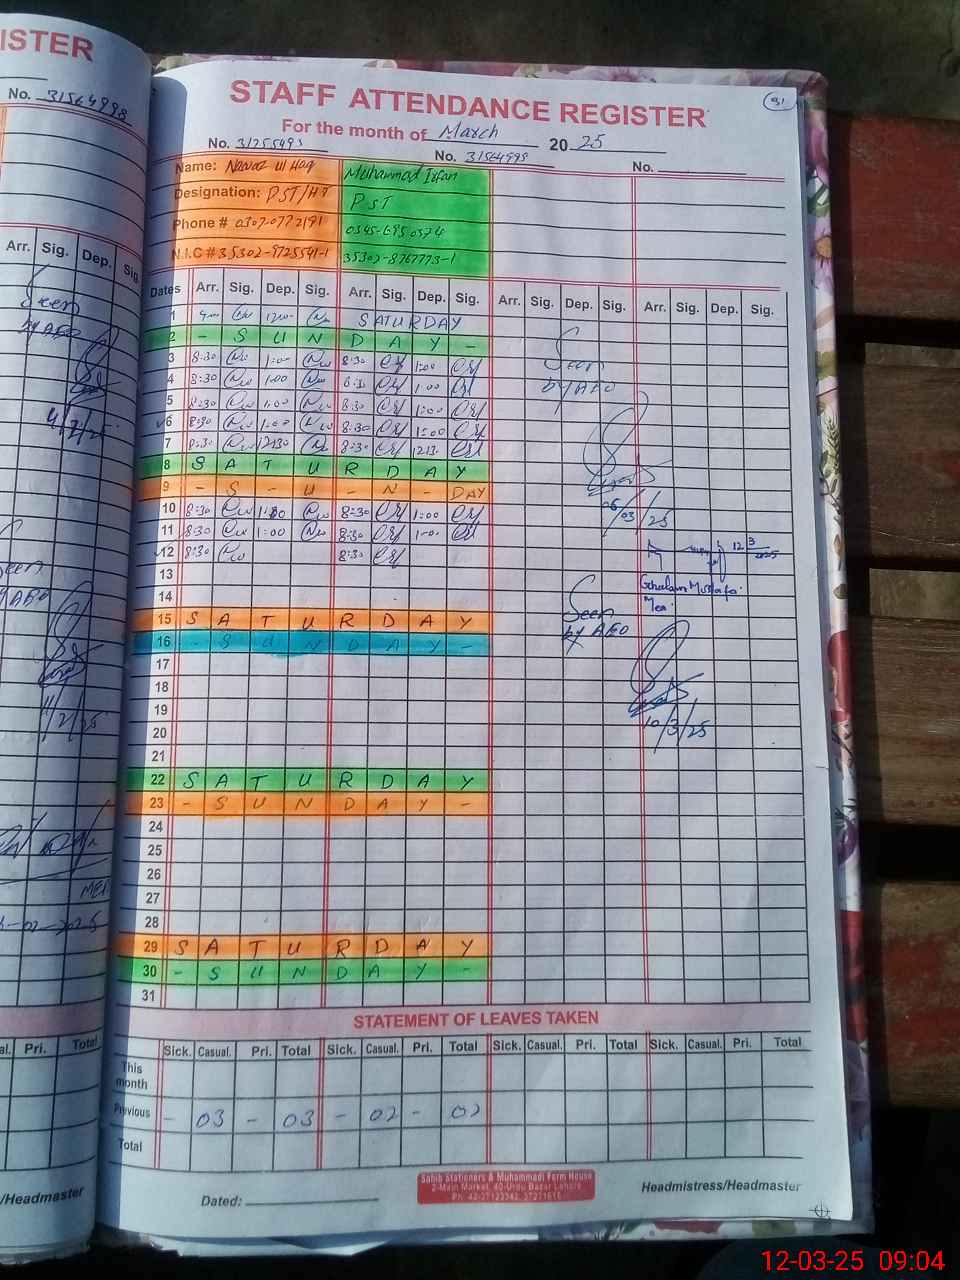 ISTER
No. 31564998
Arr. Sig. Dep. Sig.
Seen
by AEO
Seen
by AEO
11/2/25
Total
Pri.
/Headmaster
STAFF ATTENDANCE REGISTER
91
For the month of March 2025
No. 31255493 No. 31564998 No.
Name: Nawaz ul Haq Muhammad Irfan
Designation: PST/HT PST
Phone # 0307-0772191 0345-6950574
N.I.C # 35302-9725541-1 35302-8767773-1
Dates Arr. Sig. Dep. Sig. Arr. Sig. Dep. Sig. Arr. Sig. Dep. Sig. Arr. Sig. Dep. Sig.
1 SATURDAY
2 - S U N D A Y -
3 8:30 1:00 8:30 1:00
4 8:30 1:00 8:30 1:00
5 8:30 1:00 8:30 1:00
6 8:30 1:00 8:30 1:00
7 8:30 12:30 8:30
8 S A T U R D A Y
9 - S - U - N - DAY
10 8:30 1:00 8:30 1:00
11 8:30 1:00 8:30 1:00
12 8:30 8:30
13
14
15 S A T U R D A Y
16 - S U N D A Y -
17
18
19
20
21
22 S A T U R D A Y
23 - S U N D A Y -
24
25
26
27
28
29 S A T U R D A Y
30 - S U N D A Y -
31
Seen
by AEO
06/03/25
12 3 2025
Ghulam Mustafa
Mea
Seen
by AEO
10/3/25
STATEMENT OF LEAVES TAKEN
Sick. Casual. Pri. Total Sick. Casual. Pri. Total Sick. Casual. Pri. Total Sick. Casual. Pri. Total
This month
Previous - 03 - 03 - 02 - 02
Total
Dated:
Sabib Stationers & Muhammadi Form House
2-Main Market, 40-Urdu Bazar Lahore
Headmistress/Headmaster
12-03-25 09:04